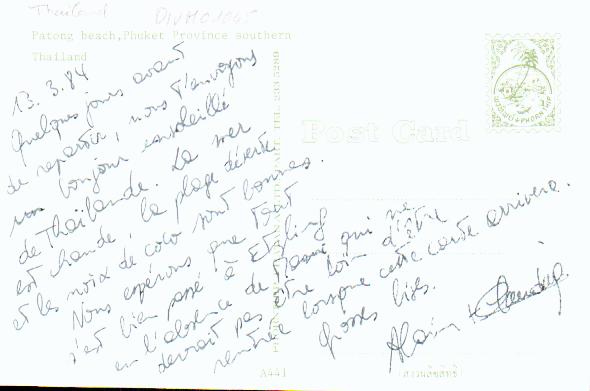 Thailand DIVMO1045
Patong beach, Phuket Province southern
Thailand
13.3.84
Quelques jours avant
de repartir, nous t'envoyons
un bonjour ensoleillé
de Thaïlande. La mer
est chaude, la plage déserte
et les noix de coco sont bonnes.
Nous espérons que tout
s'est bien passé à
en l'absence de qui ne
devrait pas être loin d'être
rentrée lorsque cette carte arrivera.
Grosses bises.
Alain
Post Card
PHORN THIP
TEL. 233 5289
A441
สงวนลิขสิทธิ์